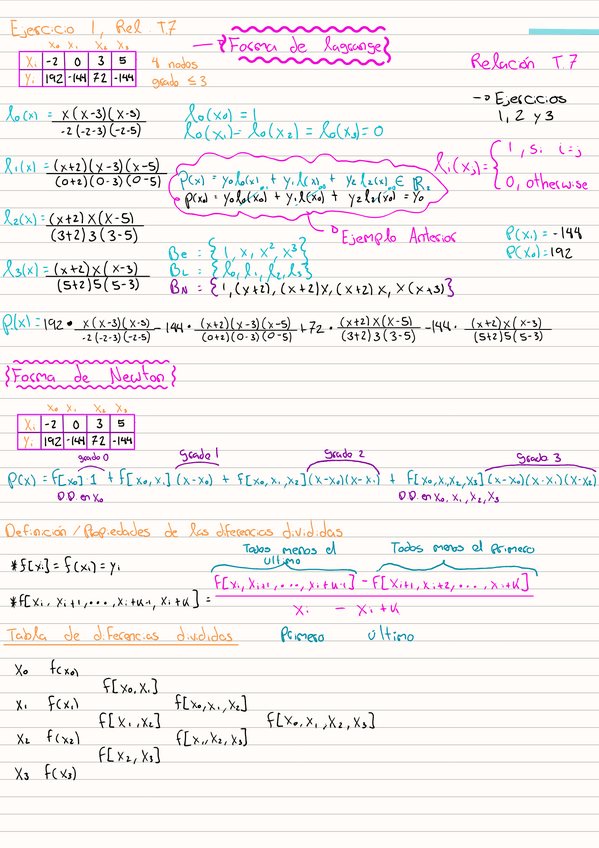 Ejercicio 1, Rel. T.7
{Forma de lagrange}
Relación T.7
x₀ x₁ x₂ x₃
Xᵢ -2 0 3 5
Yᵢ 192 -144 72 -144
4 nodos
grado ≤ 3
→ Ejercicios
1, 2 y 3
l₀(x) = x(x-3)(x-5) / -2(-2-3)(-2-5)
l₀(x₀) = 1
l₀(x₁) = l₀(x₂) = l₀(x₃) = 0
lᵢ(xⱼ) = { 1, si i=j
0, otherwise
l₁(x) = (x+2)(x-3)(x-5) / (0+2)(0-3)(0-5)
p(x) = y₀l₀(x) + y₁l₁(x) + y₂l₂(x) ∈ ℝ₂
p(x₀) = y₀l₀(x₀) + y₁l₁(x₀) + y₂l₂(x₀) = y₀
l₂(x) = (x+2)x(x-5) / (3+2)3(3-5)
Ejemplo Anterior
P(x₁) = -144
P(x₀) = 192
l₃(x) = (x+2)x(x-3) / (5+2)5(5-3)
Bc = {1, x, x², x³}
BL = {l₀, l₁, l₂, l₃}
BN = {1, (x+2), (x+2)x, (x+2)x, x(x+3)}
p(x) = 192 · x(x-3)(x-5) / -2(-2-3)(-2-5) - 144 · (x+2)(x-3)(x-5) / (0+2)(0-3)(0-5) + 72 · (x+2)x(x-5) / (3+2)3(3-5) - 144 · (x+2)x(x-3) / (5+2)5(5-3)
{Forma de Newton}
x₀ x₁ x₂ x₃
Xᵢ -2 0 3 5
Yᵢ 192 -144 72 -144
grado 0 Grado 1 Grado 2 Grado 3
p(x) = f[x₀]·1 + f[x₀,x₁](x-x₀) + f[x₀,x₁,x₂](x-x₀)(x-x₁) + f[x₀,x₁,x₂,x₃](x-x₀)(x-x₁)(x-x₂)
D.D. en x₀ D.D. en x₀, x₁, x₂, x₃
Definición / Propiedades de las diferencias divididas
Todos menos el último Todos menos el primero
*f[xᵢ] = f(xᵢ) = yᵢ
*f[xᵢ, xᵢ₊₁, ..., xᵢ₊ₖ₋₁, xᵢ₊ₖ] = f[xᵢ, xᵢ₊₁, ..., xᵢ₊ₖ₋₁] - f[xᵢ₊₁, xᵢ₊₂, ..., xᵢ₊ₖ] / xᵢ - xᵢ₊ₖ
Tabla de diferencias divididas
Primero último
x₀ f(x₀)
f[x₀,x₁]
x₁ f(x₁) f[x₀,x₁,x₂]
f[x₁,x₂] f[x₀,x₁,x₂,x₃]
x₂ f(x₂) f[x₁,x₂,x₃]
f[x₂,x₃]
x₃ f(x₃)